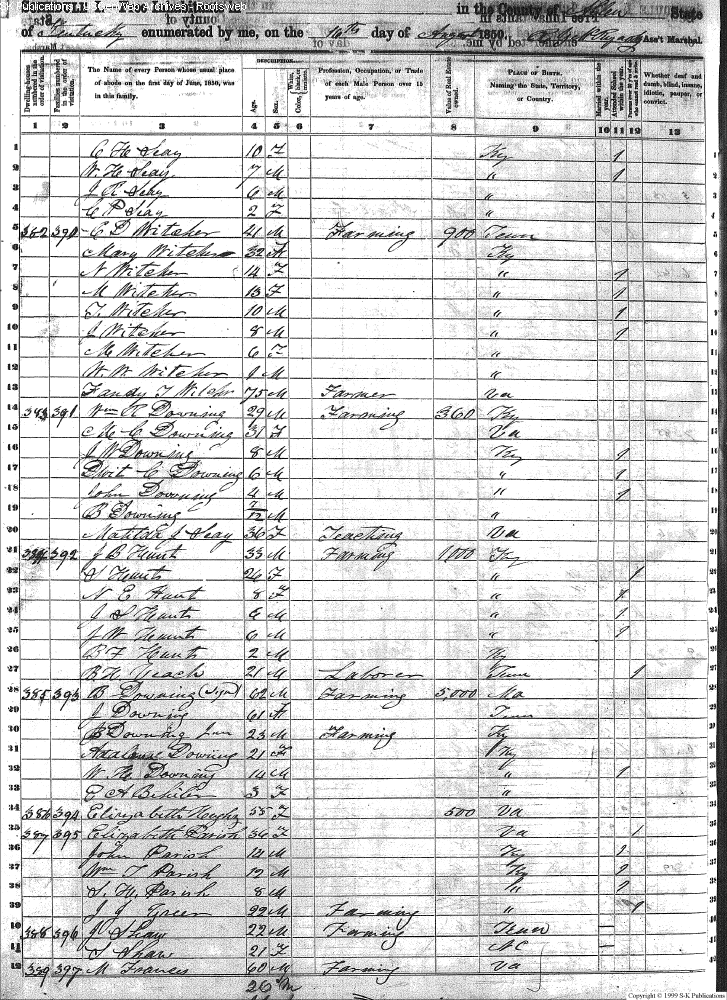 in the County of Allen State
of Kentucky enumerated by me, on the 10th day of August 1850. Ass't Marshal.
DESCRIPTION.
Dwelling-house numbered in the order of visitation.
Families numbered in the order of visitation.
The Name of every Person whose usual place of abode on the first day of June, 1850, was in this family.
Age.
Sex.
White, Color, black, or mulatto.
Profession, Occupation, or Trade of each Male Person over 15 years of age.
Value of Real Estate owned.
PLACE OF BIRTH. Naming the State, Territory, or Country.
Married within the year.
Attended School within the year.
Whether deaf and dumb, blind, insane, idiotic, pauper, or convict.
1 2 3 4 5 6 7 8 9 10 11 12 13
1 C H Seay 10 F Ky 1
2 W H Seay 7 M " 1
3 J R Seay 6 M "
4 C P Seay 2 F "
5 382 390 C D Witcher 41 M Farming 900 Tenn
6 Mary Witcher 32 F Ky
7 N Witcher 14 F " 1
8 M Witcher 13 F " 1
9 T. Witcher 10 M " 1
10 J Witcher 8 M " 1
11 M Witcher 6 F "
12 W W Witcher 1 M "
13 Tandy T Witcher 75 M Farmer Va
14 383 391 Wm R Downing 29 M Farming 360 Ky
15 M C Downing 31 F Va
16 J W Downing 8 M Ky 1
17 Dwit C Downing 6 M " 1
18 John Downing 4 M " 1
19 B Downing 7/12 M "
20 Matilda J Seay 36 F Teaching Va
21 384 392 J B Hunt 33 M Farming 1,000 Ky
22 S Hunt 26 F " 1
23 N E Hunt 8 F " 1
24 J S Hunt M " 1
25 J W Hunt 6 M " 1
26 B F Hunt 2 M Ky
27 B H Veach 21 M Laborer Tenn 1
28 385 393 B Downing (Sen) 62 M Farming 5,000 Md
29 J Downing 61 F Tenn
30 B Downing Jun 23 M Farming Ky
31 Downing 21 F Ky
32 W H Downing 14 M " 1
33 3 F "
34 386 394 Elizabeth 55 F 500 Va
35 387 395 Elizabeth Parish 36 F Va 1
36 John Parish 14 M Ky 1
37 Wm T Parish 12 M Ky 1
38 S. H. Parish 8 M " 1
39 J J Green 22 M Farming " 1
40 388 396 J Shaw 22 M Farming Tenn
41 S Shaw 21 F NC
42 389 397 M Frances 60 M Farming Va
26 M
Copyright © 1999 S-K Publications